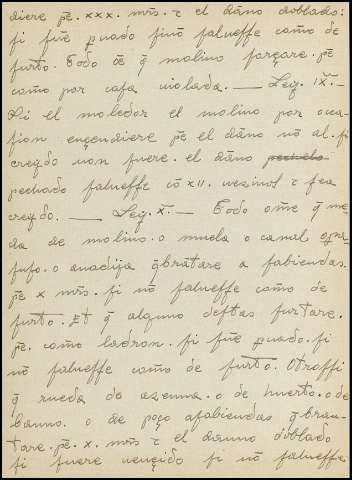 diere pē. xxx. mr̄s. τ el dāno doblado:
si fuē puado sinō salvesse como de
furto. Todo oē q̄ molino forçare. pē
como por casa violada. — Ley. IX.ª —
Si el moledor el molino por oca-
sion ençendiere pē el dāno nō al. si
creydo non fuere. el dāno
pechado salvesse cō XII. vezinos τ sea
creydo. — Ley. X.ª — Todo ome q̄
de molino. o muela o canal
suso. o anadija q̄brātare a sabiendas.
pē x mr̄s. si nō salvesse como de
furto. Et q̄ alguno destas furtare.
pē. como ladron. si fuē puado. si
nō salvesse como de furto. Otrossi
q̄ rueda de azenna. o de huerto. o de
banno. o de poço asabiendas q̄bran-
tare. pē. x. mr̄s τ el danno doblado
si fuere vençido si nō salvesse